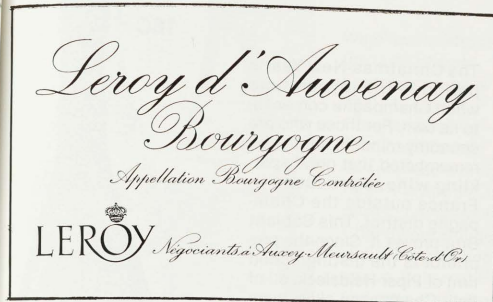 Leroy d'Auvenay
Bourgogne
Appellation Bourgogne Contrôlée
LEROY Négociants à Auxey-Meursault (Côte-d'Or)